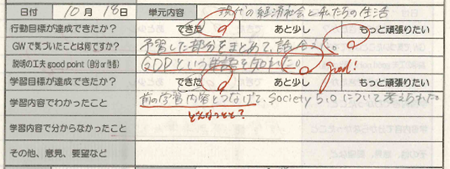 日付 10月18日 単元内容 現代の経済社会と私たちの生活
行動目標が達成できたか? できた あと少し もっと頑張りたい
GWで気づいたことは何ですか? 予習した部分をまとめて話
説明の工夫 good point(自分or他者) GDPという good!
学習目標が達成できたか? できた あと少し もっと頑張りたい
学習内容でわかったこと 前の学習内容とつなげて、Society 5.0について考えられた。
どんなこと?
学習内容で分からなかったこと
その他、意見、要望など